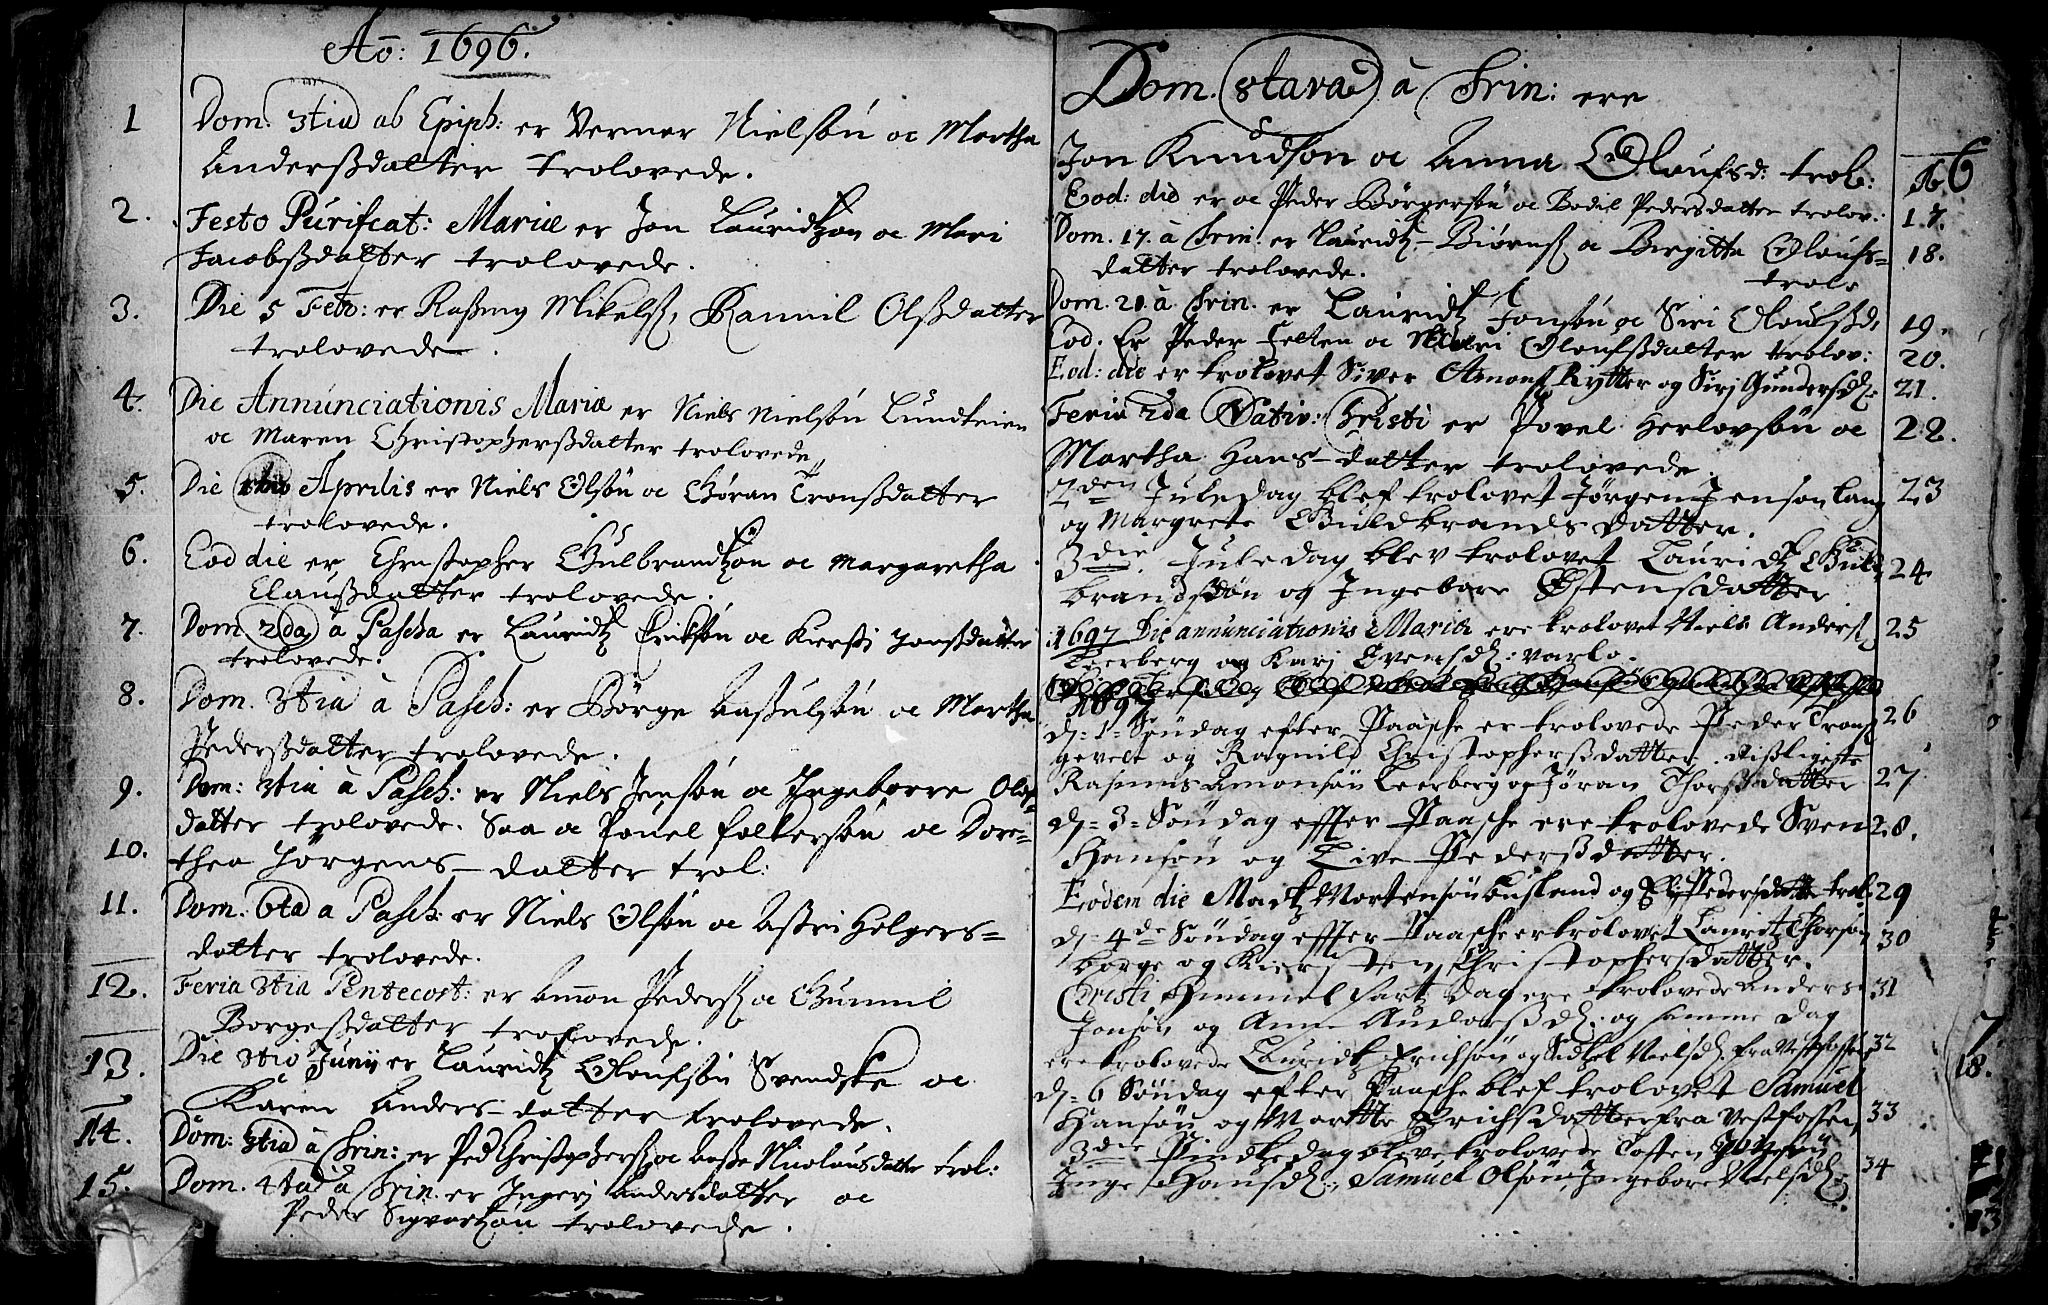 Aō: 1696.
1 Dom. 3tia ab Epiph: er Verner Nielsøn oc Martha
Andersßdatter trolovede.
2. Festo Purificat: Mariæ er Jon Lauridtzøn oc Mari
Jacobsßdatter trolovede.
3. Die 5 Febr: er Raßmus Mikels. Rannil Olsßdatter
trolovede.
4. Die Annunciationis Mariæ er Niels Nielsøn Lundteien
oc Maren Christophersßdatter trolovede
5. Die Aprilis er Niels Olsøn oc Gøran Tronsßdatter
trolovede.
6. Eod die er Christopher Gulbrandtzøn oc Margaretha
Clausßdatter trolovede.
7. Dom 2da à Pascha er Lauridtz Eriksøn oc Kiersti Jonsßdatter
trolovede.
8. Dom. 3tia à Pasch: er Børge Aasulsøn oc Martha
Pedersßdatter trolovede.
9. Dom: 3tia à Pasch: er Niels Jensøn oc Ingeborre Olufs-
datter trolovede. Saa oc Povel Folkersøn oc Doro-
10. thea Jørgens-datter trol:
11. Dom. 6ta a Pasch: er Niels Olsøn oc Astri Helgers=
datter trolovede.
12. Feria 3tia Pentecost: er Amon Peders. oc Gunnil
Borgesßdatter trolovede.
13. Die 3tio Junij er Lauridtz Oloufsøn Svendske oc
Karen Anders-datter trolovede.
14. Dom: 3tia à Trin: er Ped Christophers. oc Aaße Nicolausdatter trol:
15. Dom. 4ta à Trin. er Ingerj Andersdatter oc
Peder Sigvartzøn trolovede.
Dom. 8tava à Trin: ere
Jon Knudsøn oc Anna Oloufsd: trol: 16
6
Eod: die er oc Peder Børgersøn oc Bodil Pedersdatter trolov: 17.
Dom. 17. à Trin: er Lauridtz Biørns. oc Birgitta Oloufs= 18.
datter trolovede.
trolo
Dom. 20 à Trin. er Lauridtz Jonsøn oc Siri Oloufsßd. 19.
Eod. Er Peder Felten oc Mari Oloufsßdatter trolov: 20.
Eod: die er trolovet Siver Amons. Rytter og Sirj Gundersd: 21.
Feria 2da Nativ: Christi er Povel Herlovsøn oc 22.
Martha Hans-datter trolovede.
2den Juledag blef trolovet Jørgen Jensøn Lang 23
og Margrete Guldbrandsdatter.
3die Juledag blev trolovet Lauridtz Guld- 24
brandsøn og Ingebore Østensdatter
1697 Die annunciationis Mariæ ere trolovet Niels Anders. 25
Teerberg og Karj Evensd: Varlo.
1697
d. 1. Søndag efter Paasche er trolovede Peder Trons. 26
gevelt og Ragnild Christophersßdatter. Dißligeste
Rasmus Amonsøn Teerberg og Jøran Thorsßdatter 27
d. 3. Søndag effter Paasche ere trolovede Sven 28.
Hansøn og Live Pedersßdatter.
Eodem die Madtz Mortensøn Buskand og Eli Pedersdatter trol. 29
d. 4de Søndag effter Paasche er trolovet Lauritz Thorsøn 30
borge og Kiersten Christophersdatter.
Christi Himmelfartz Dag ere trolovede Anders 31
Jonsøn og Anne Andersßd: og samme dag
ere trolovede Lauridtz Erichsøn og Sidsel Nielsd: fra Vestfossen 32
d. 6 Søndag efter Paasche blef trolovet Samuel
Hansøn og Marte Erichsdatter fra Vestfossen 33
3die Pindtzedag bleve trolovede Tosten
Inge Hansd:, Samuel Olsøn, Ingebore Nielsd: 34
7.
18.
13